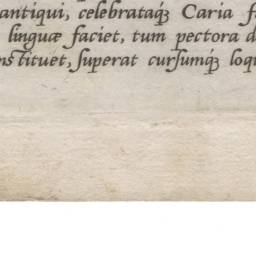 antiqui, celebrataq́; Caria f
linguæ faciet, tum pectora d
nstituet, ſuperat curſumq́; loq